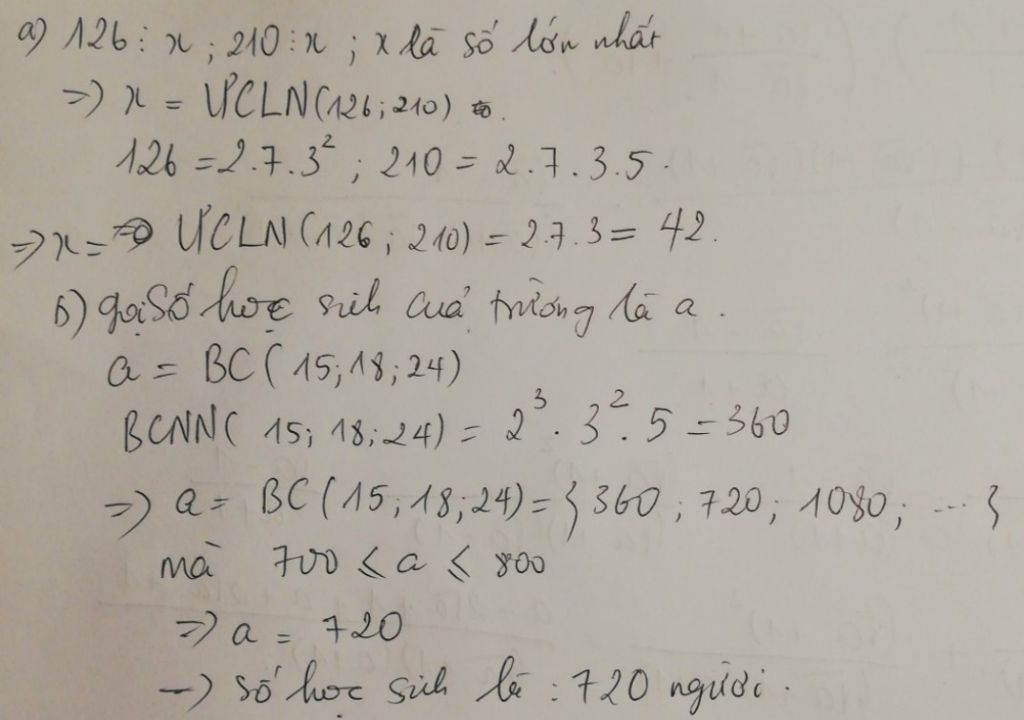 a) 126 ⋮ x ; 210 ⋮ x ; x là số lớn nhất
=> x = ƯCLN(126; 210)
126 = 2.7.3² ; 210 = 2.7.3.5.
=> x = ƯCLN(126; 210) = 2.7.3 = 42.
b) gọi số học sinh của trường là a.
a = BC(15; 18; 24)
BCNN(15; 18; 24) = 2³.3².5 = 360
=> a = BC(15; 18; 24) = {360; 720; 1080; ...}
mà 700 ≤ a ≤ 800
=> a = 720
-> số học sinh là : 720 người.